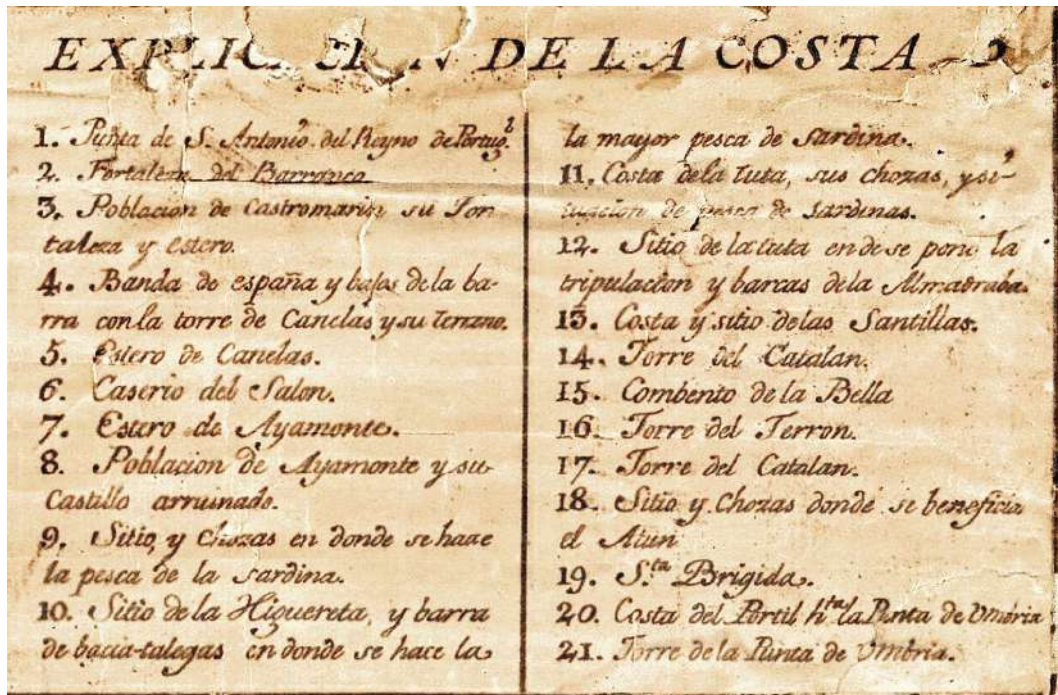 DE LA COSTA
1. Punta de S. Antonio del Reyno de Portug.l
2. Fortaleza del Barranco
3. Poblacion de Castromarin su For-
taleza y estero.
4. Banda de españa y bajos dela ba-
rra conla torre de Canelas y su terreno.
5. Estero de Canelas.
6. Caserio del Salon.
7. Estero de Ayamonte.
8. Poblacion de Ayamonte y su
Castillo arruinado.
9. Sitio, y Chozas en donde se hace
la pesca de la sardina.
10. Sitio dela Higuereta, y barra
de bacia-talegas en donde se hace la
la mayor pesca de sardina.
11. Costa dela tuta, sus chozas, y si-
tuacion de pesca de sardinas.
12. Sitio de la tuta en de se pone la
tripulacion y barcas dela Almadraba.
13. Costa y sitio delas Santillas.
14. Torre del Catalan.
15. Combento de la Bella
16. Torre del Terron.
17. Torre del Catalan.
18. Sitio y Chozas donde se beneficia
el Atun
19. S.ta Brigida.
20. Costa del Portil h.ta la Punta de Umbria
21. Torre dela Punta de Umbria.